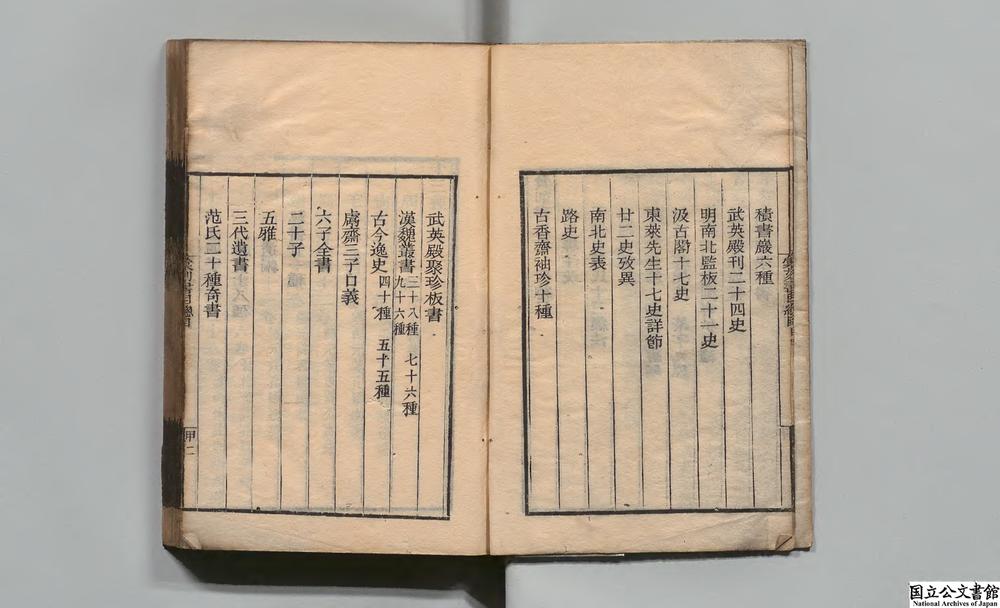 積書巖六種
武英殿刊二十四史
明南北監板二十一史
汲古閣十七史
東萊先生十七史詳節
廿二史攷異
南北史表
路史
古香齋袖珍十種
武英殿聚珍板書
漢魏叢書 三十八種 七十六種 九十六種
古今逸史 四十種 五十五種
鬳齋三子口義
六子全書
二十子
五雅
三代遺書
范氏二十種奇書
甲二
国立公文書館
National Archives of Japan